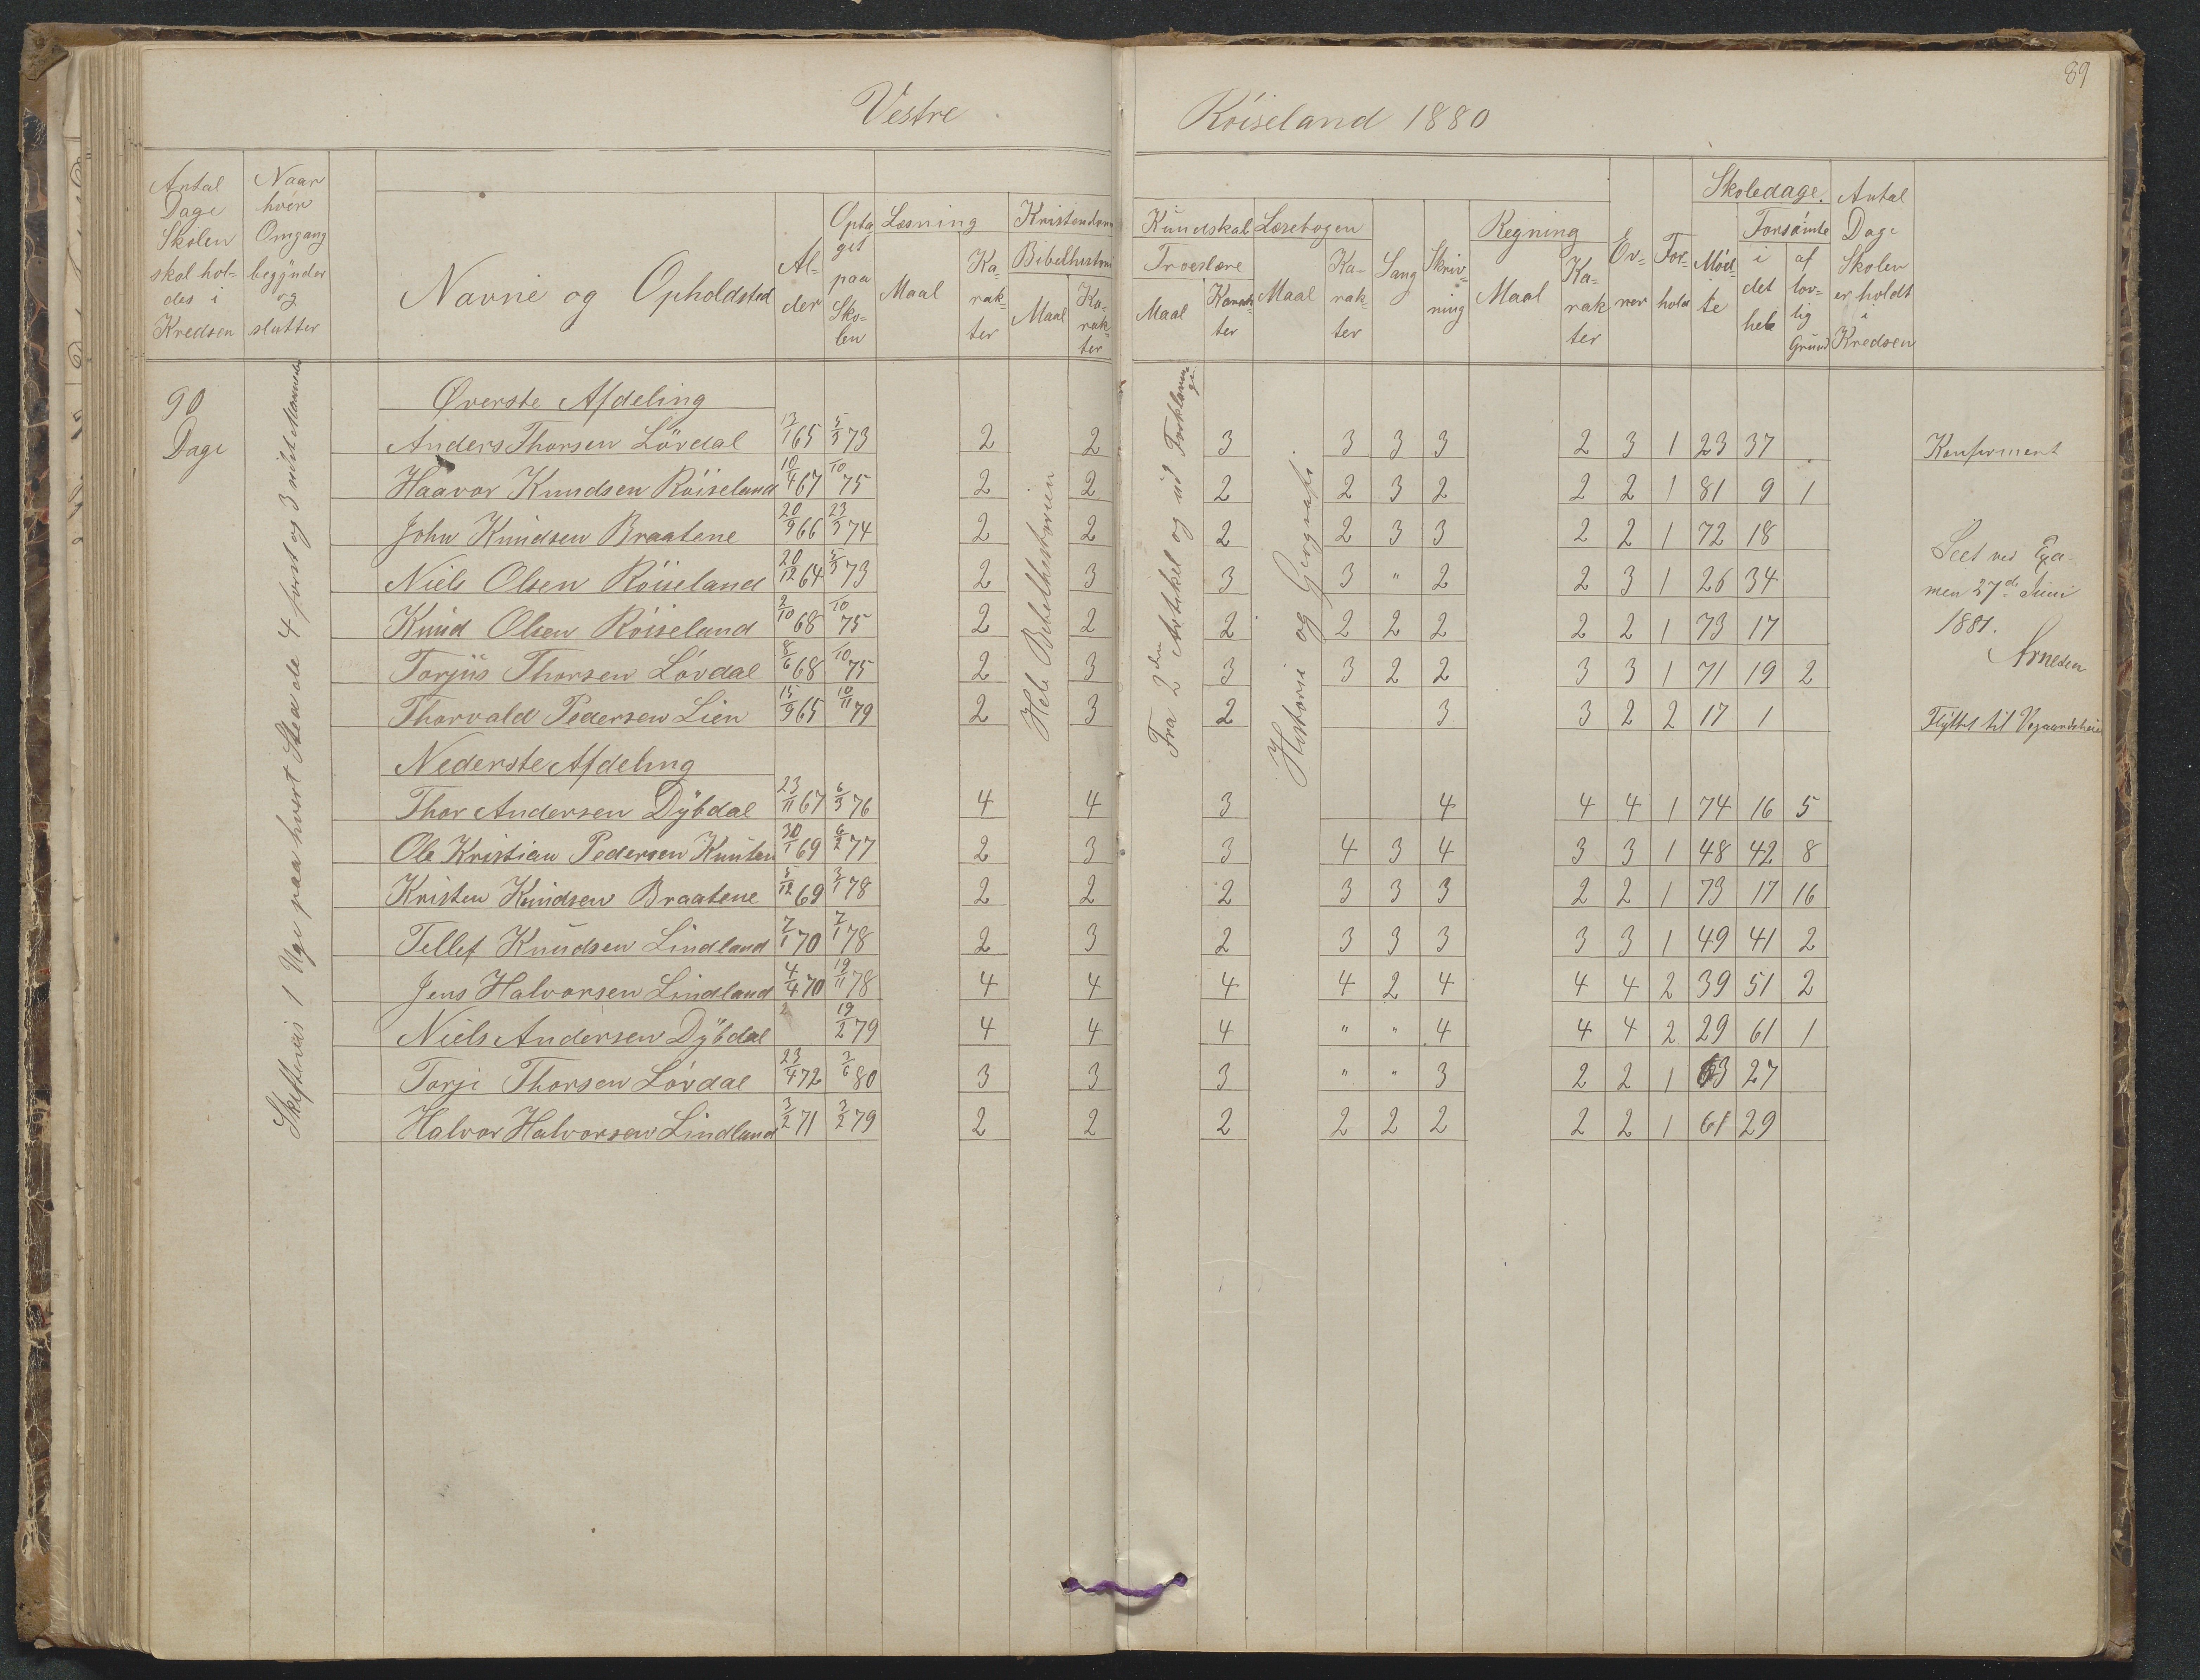 89
Vestre Röiseland 1880
Antal Dage Skolen skal holdes i Kredsen
Naar hver Omgang begÿnder og slutter
Navne og Opholdsted
Alder
Optaget paa Skolen
Læsning
Maal
Karakter
Kristendoms Kundskab
Bibelhistorie
Maal
Karakter
Troeslære
Maal
Karakter
Læsebogen
Maal
Karakter
Sang
Skrivning
Regning
Maal
Karakter
Evner
Forhold
Skoledage.
Mødte
Forsömte
i det hele
af lovlig Grund
Antal Dage Skolen er holdt i Kredsen
90 Dage
Skiftevis 1 Uge paa hvert Sted de 4 først og 3 sidste Maaneder
Hele Bibelhistorien
Fra 2den Artikel og ud Forklaringe
Historie og Geografi
Øverste Afdeling
Anders Thorsen Lövdal 13/1 65 5/3 73 2 2 3 3 3 3 2 3 1 23 37 Konfirmert
Haavor Knudsen Röiseland 10/4 67 10 75 2 2 2 2 3 2 2 2 1 81 9 1
John Knudsen Braatene 20/9 66 23/3 74 2 2 2 2 3 3 2 2 1 72 18
Niels Olsen Röiseland 20/12 64 5/3 73 2 3 3 3 " 2 2 3 1 26 34
Knud Olsen Röiseland 2/10 68 10 75 2 2 2 2 2 2 2 2 1 73 17
Torjüs Thorsen Lövdal 8/6 68 10 75 2 3 3 3 2 2 3 3 1 71 19 2
Thorvald Pedersen Lien 15/9 65 10/11 79 2 3 2 3 3 2 2 17 1 Flÿttet til Vegaardsheien
Seet ved Examen 27de Juni 1881.
Arnesen
Nederste Afdeling
Thor Andersen Dÿbdal 23/11 67 6/3 76 4 4 3 4 4 4 1 74 16 5
Ole Kristian Pedersen 30/1 69 6/2 77 2 3 3 4 3 4 3 3 1 48 42 8
Kristen Knudsen Braatene 5/12 69 3/1 78 2 2 2 3 3 3 2 2 1 73 17 16
Tellef Knudsen Lindland 7/1 70 7/1 78 2 3 2 3 3 3 3 3 1 49 41 2
Jens Halvorsen Lindland 4/4 70 19/11 78 4 4 4 4 2 4 4 4 2 39 51 2
Niels Andersen Dÿbdal 2 19/2 79 4 4 4 " " 4 4 4 2 29 61 1
Torje Thorsen Lövdal 23/4 72 3/6 80 3 3 3 " " 3 2 2 1 63 27
Halvor Halvorsen Lindland 3/2 71 3/2 79 2 2 2 2 2 2 2 2 1 61 29